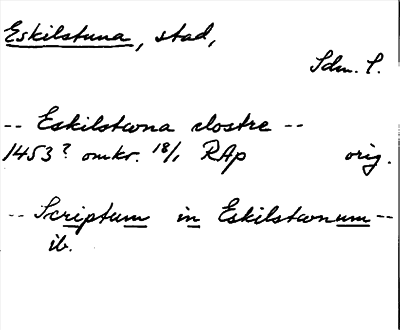 Eskilstuna, stad,
Sdm. l.
-- Eskilstwna clostre --
1453? omkr. 18/1 RAp orig.
-- Scriptum in Eskilstwnum --
ib.